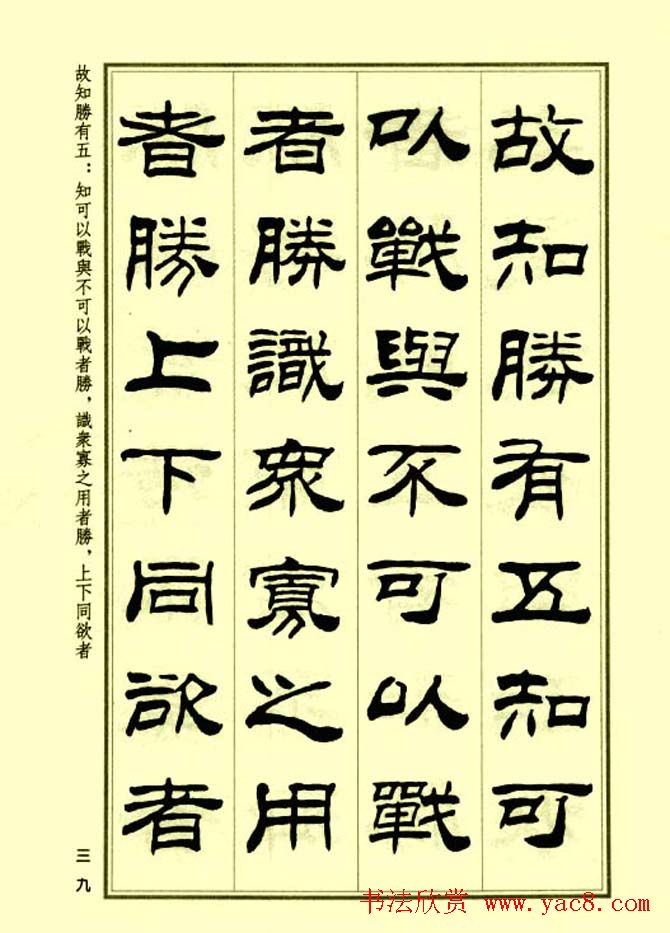 故知勝有五知可
以戰與不可以戰
者勝識衆寡之用
者勝上下同欲者
故知勝有五：知可以戰與不可以戰者勝，識衆寡之用者勝，上下同欲者
三九
书法欣赏 www.yac8.com